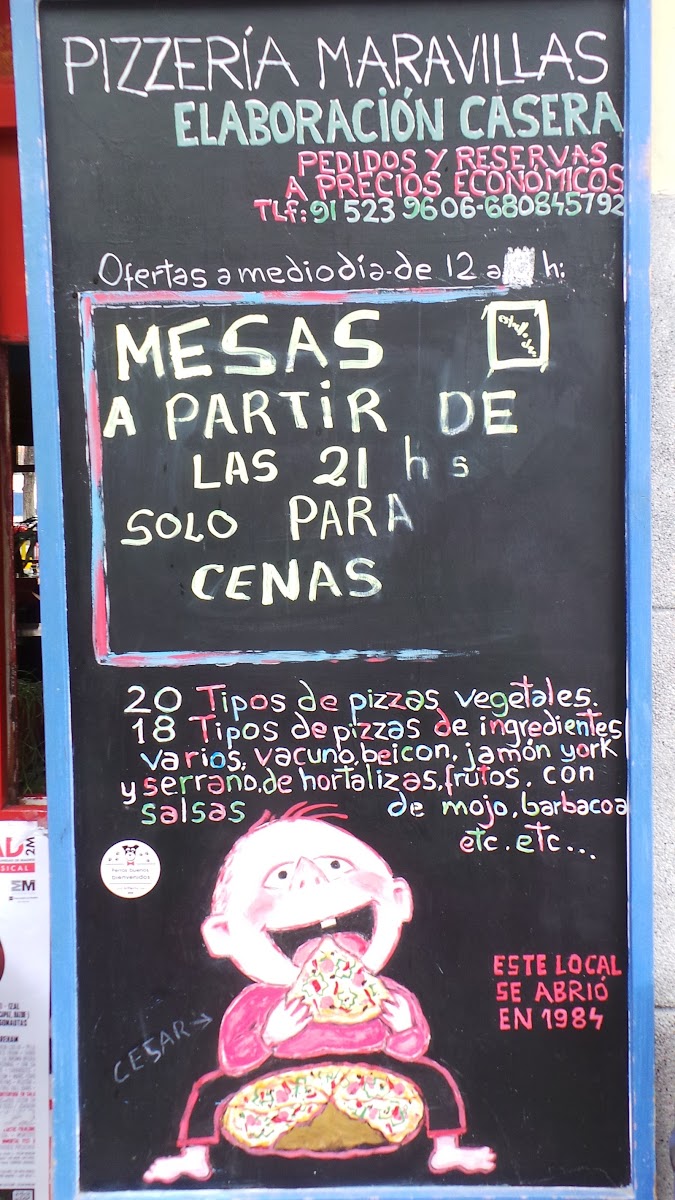 PIZZERÍA MARAVILLAS
ELABORACIÓN CASERA
PEDIDOS Y RESERVAS
A PRECIOS ECONÓMICOS
TLf: 91 523 96 06-680845792
Ofertas a mediodía-de 12 a h:
MESAS
A PARTIR DE
LAS 21 hs
SOLO PARA
CENAS
20 Tipos de pizzas vegetales.
18 Tipos de pizzas de ingredientes
varios, vacuno, beicon, jamón york
y serrano, de hortalizas, frutos, con
salsas de mojo, barbacoa
etc. etc...
Perros buenos
bienvenidos
CESAR
ESTE LOCAL
SE ABRIÓ
EN 1984
AD
2M
SICAL
M